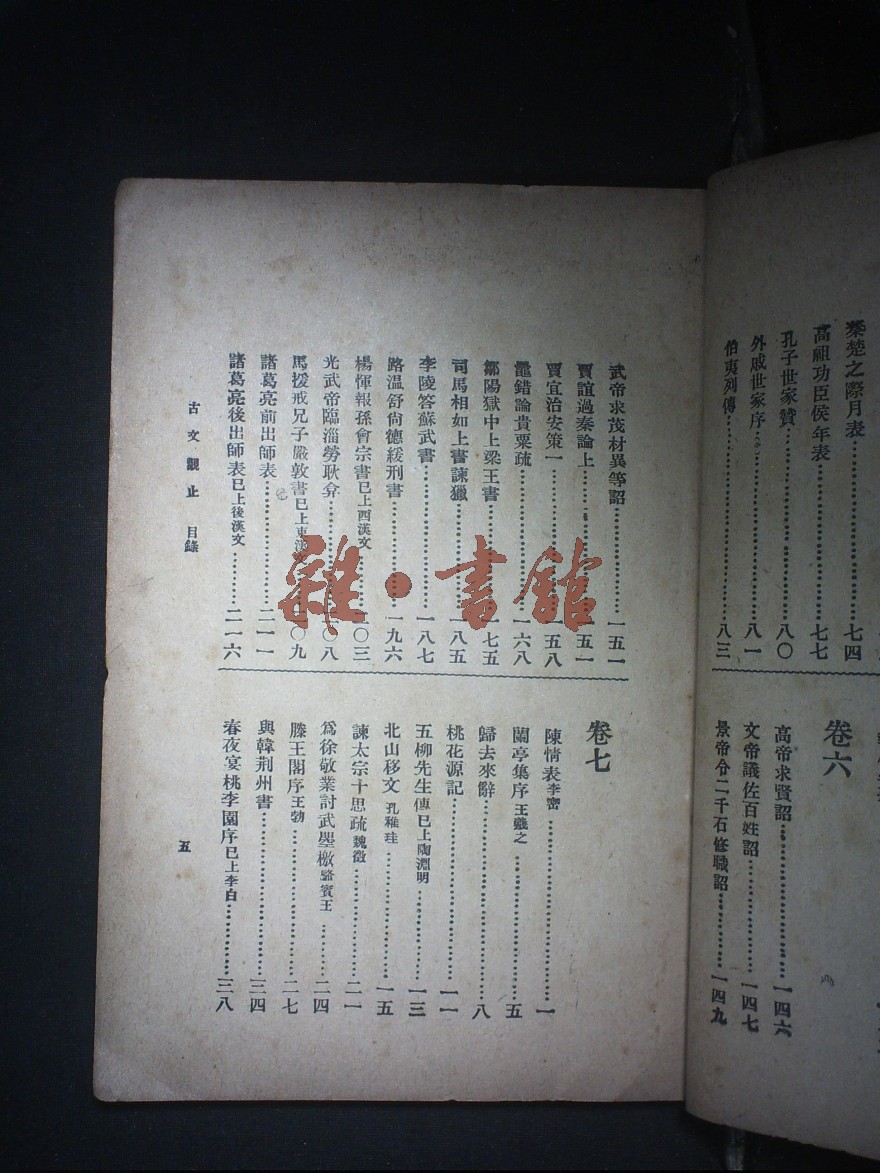 秦楚之際月表⋯⋯七四
高祖功臣侯年表⋯⋯七七
孔子世家贊⋯⋯八〇
外戚世家序⋯⋯八一
伯夷列傳⋯⋯八三
卷六
高帝求賢詔⋯⋯一四六
文帝議佐百姓詔⋯⋯一四七
景帝令二千石修職詔⋯⋯一四九
武帝求茂材異等詔⋯⋯一五一
賈誼過秦論上⋯⋯一五一
賈宜治安策一⋯⋯一五八
鼂錯論貴粟疏⋯⋯一六八
鄒陽獄中上梁王書⋯⋯一七五
司馬相如上書諫獵⋯⋯一八五
李陵答蘇武書⋯⋯一八七
路溫舒尙德緩刑書⋯⋯一九六
楊惲報孫會宗書已上西漢文⋯⋯二〇三
光武帝臨淄勞耿弇⋯⋯二〇八
馬援戒兄子嚴敦書已上東漢文⋯⋯二〇九
諸葛亮前出師表⋯⋯二一一
諸葛亮後出師表已上後漢文⋯⋯二一六
卷七
陳情表李密⋯⋯一
蘭亭集序王羲之⋯⋯五
歸去來辭⋯⋯八
桃花源記⋯⋯一一
五柳先生傳已上陶淵明⋯⋯一三
北山移文孔稚珪⋯⋯一五
諫太宗十思疏魏徵⋯⋯二一
爲徐敬業討武曌檄駱賓王⋯⋯二四
滕王閣序王勃⋯⋯二七
與韓荆州書⋯⋯三四
春夜宴桃李園序已上李白⋯⋯三八
古文觀止 目錄
五
雜·書館